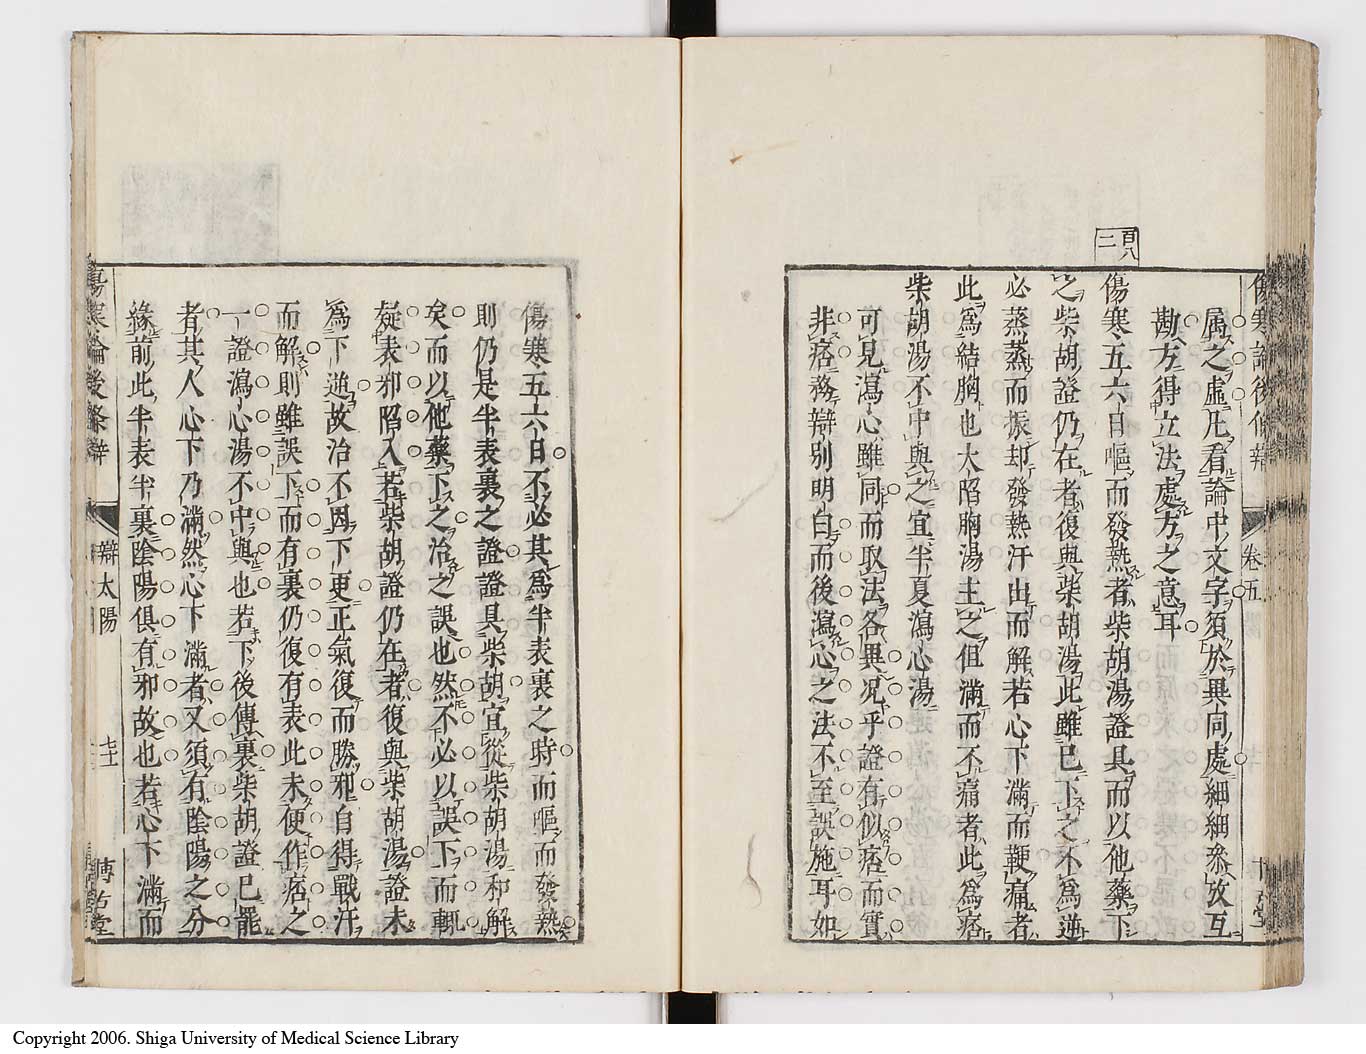 傷寒論後條辯
卷五
百八
二
属之虛凡看論中文字須於異同處細細叅攷互
勘方得立法處方之意耳
傷寒五六日嘔而發熱者柴胡湯證具而以他藥下
之柴胡證仍在者復與柴胡湯此雖已下之不爲逆
必蒸蒸而振却發熱汗出而解若心下滿而鞕痛者
此爲結胸也大陷胸湯主之但滿而不痛者此爲痞
柴胡湯不中與之宜半夏瀉心湯
可見瀉心雖同而取法各異况乎證有似痞而實
非痞務辯别明白而後瀉心之法不至誤施耳如
傷寒五六日不必其爲半表裏之時而嘔而發熱
則仍是半表裏之證證具柴胡宜從柴胡湯和解
矣而以他藥下之治之誤也然不必以誤下而輒
疑表邪陷入若柴胡證仍在者復與柴胡湯證未
爲下逆故治不因下更正氣復而勝邪自得戰汗
而解則雖誤下而有裏仍復有表此未便作痞之
一證瀉心湯不中與也若下後傳裏柴胡證已罷
者其人心下乃滿然心下滿者又須有陰陽之分
緣前此半表半裏陰陽俱有邪故也若心下滿而
傷寒論後條辯
辯太陽
博古堂
Copyright 2006. Shiga University of Medical Science Library